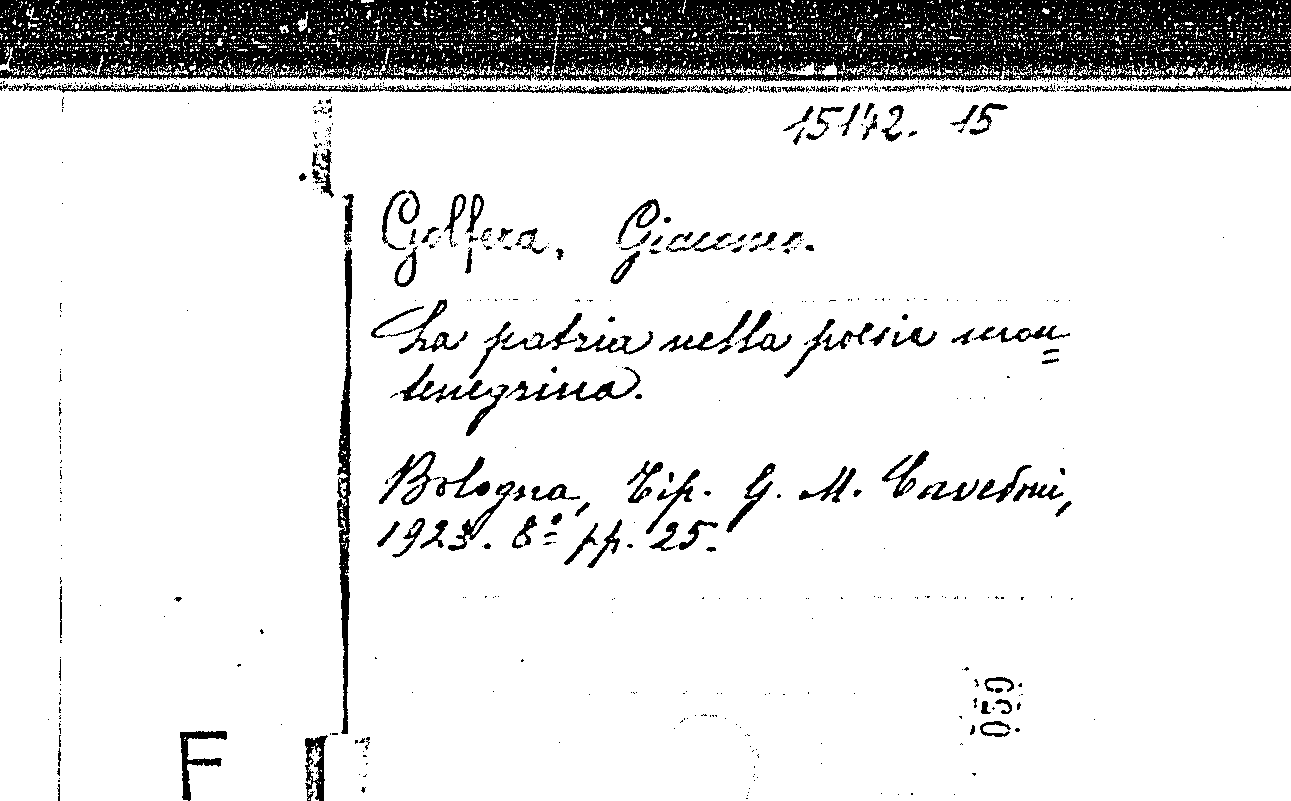 15142. 15
Golfera, Giacomo.
La patria nella poesia mon=
tenegrina.
Bologna, Tip. G. M. Cavedoni,
1923. 8º pp. 25.
059
F